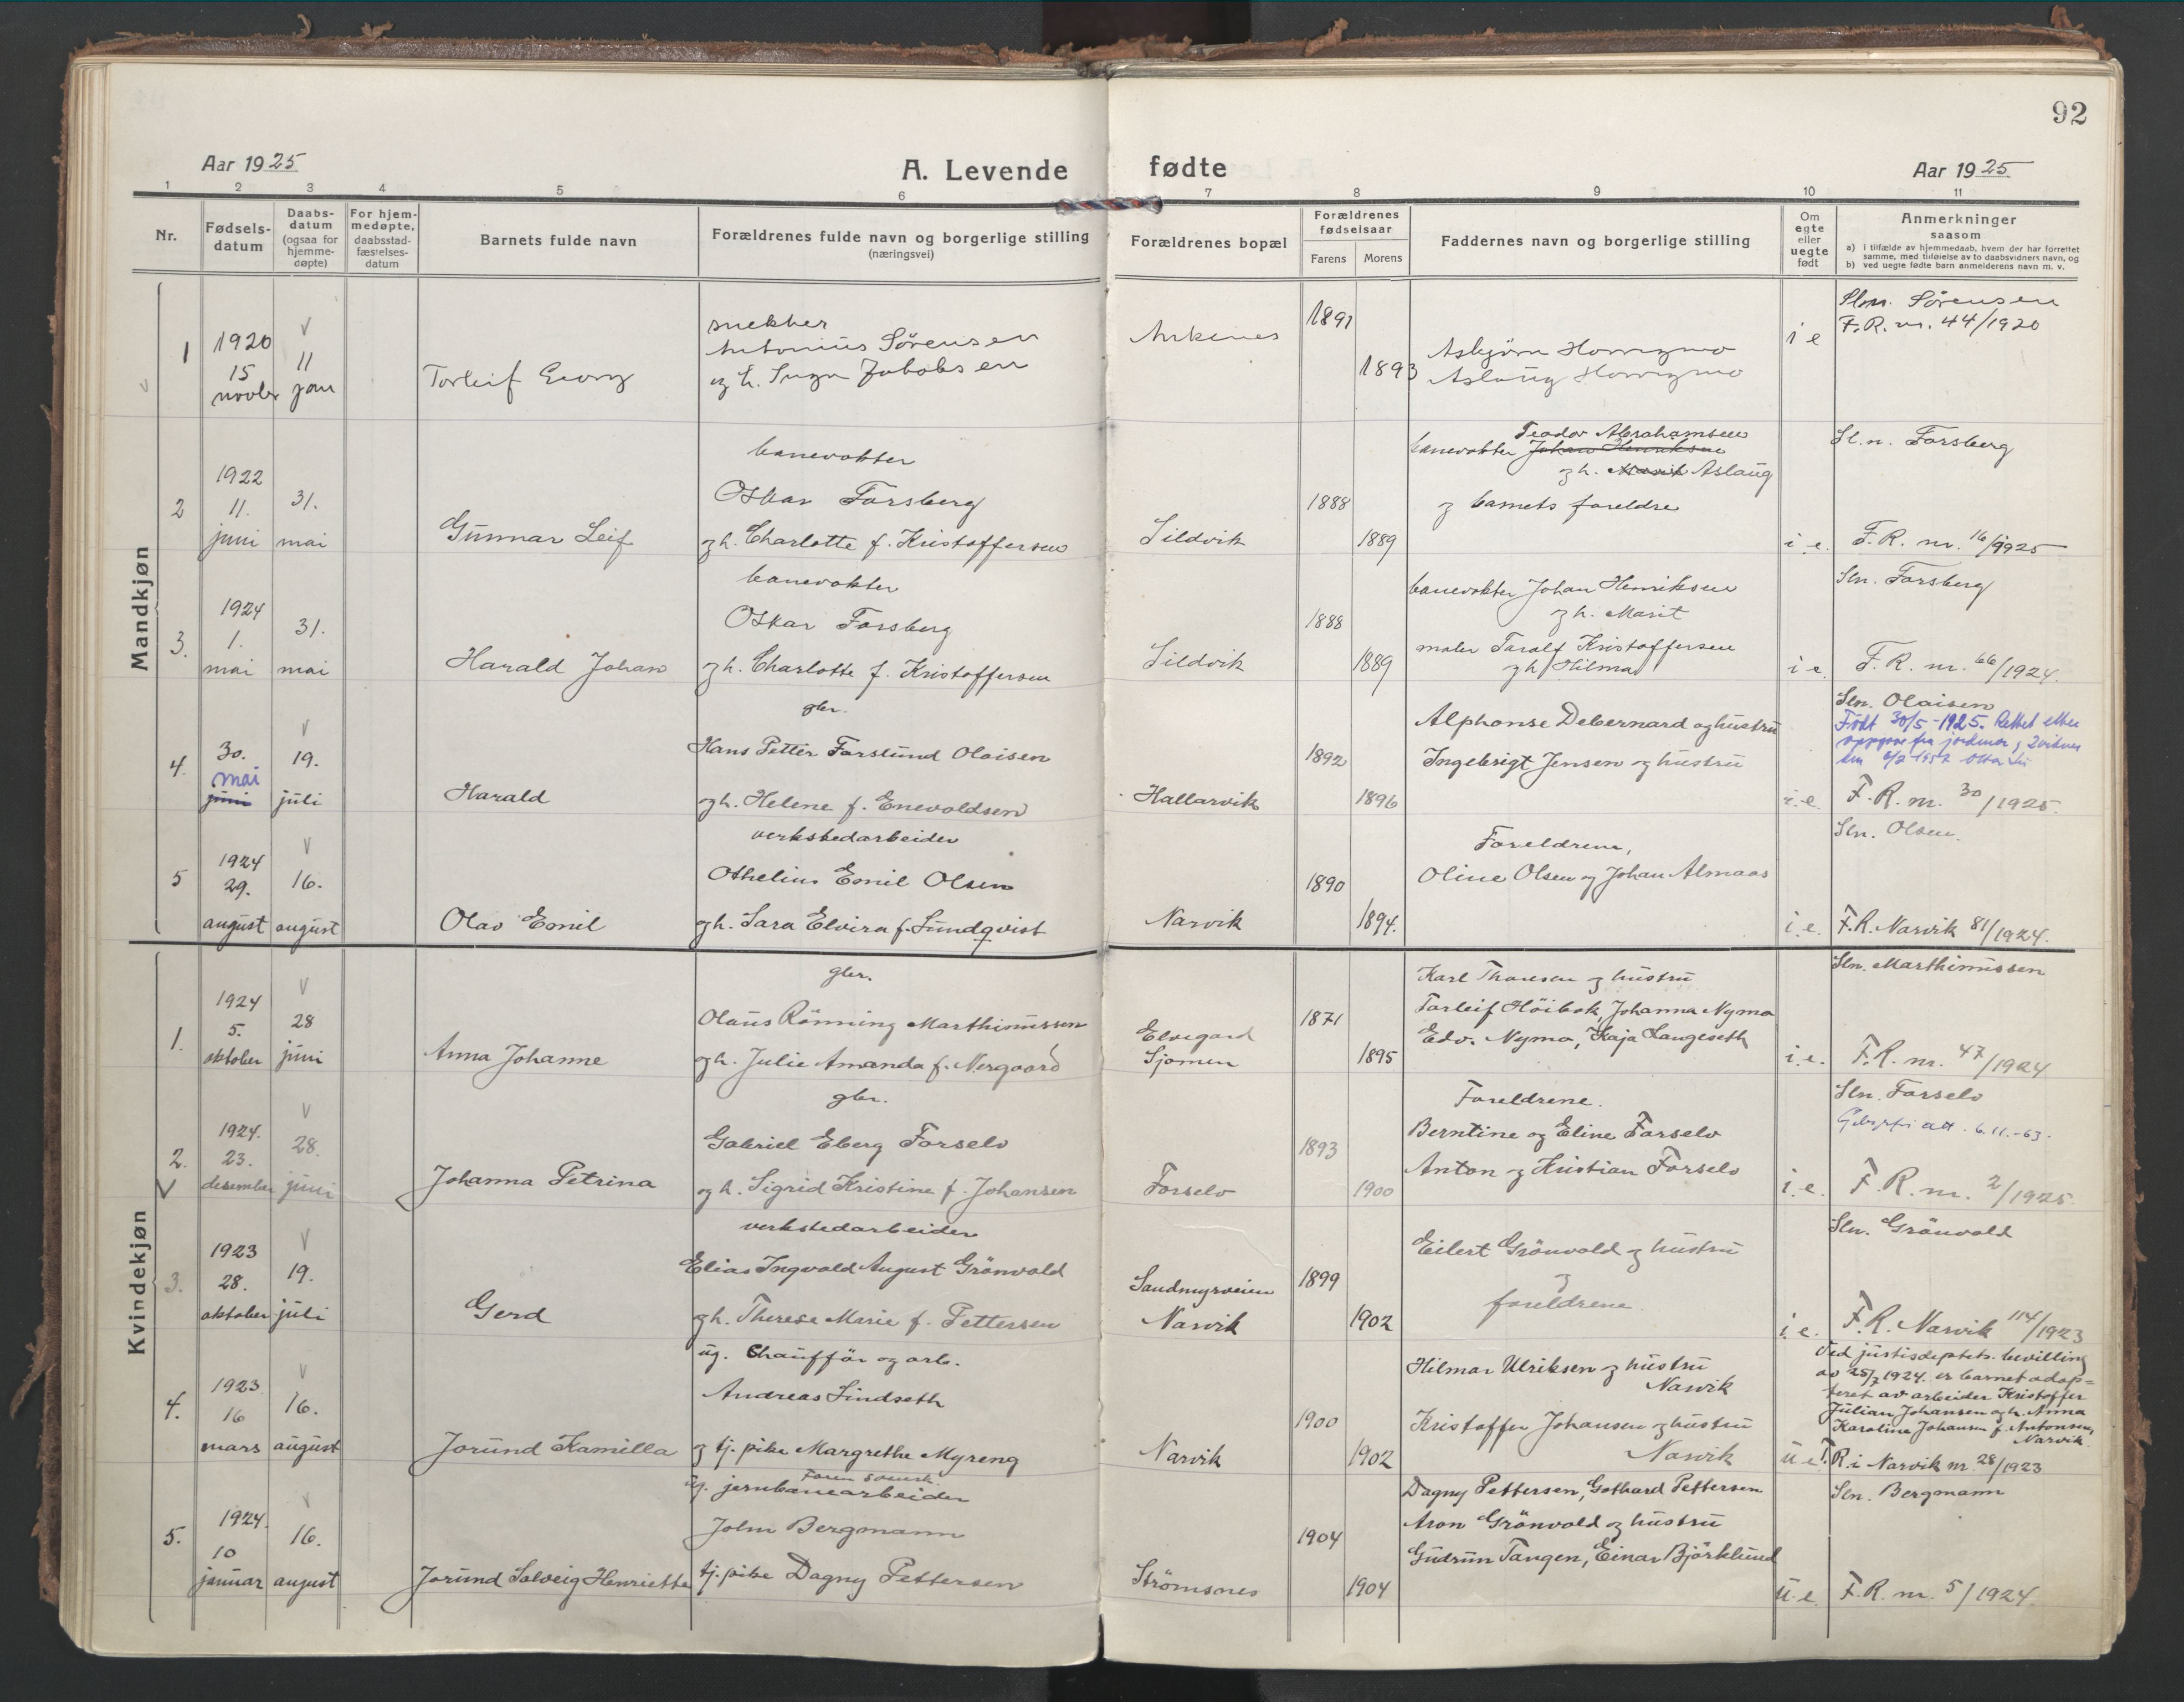 92
Aar 1925
A. Levende fødte
Aar 1925
1 2 3 4 5 6 7 8 9 10 11
Nr.
Fødsels-
datum
Daabs-
datum
(ogsaa for
hjemme-
døpte)
For hjem-
medøpte,
daabsstad-
fæstelses-
datum
Barnets fulde navn
Forældrenes fulde navn og borgerlige stilling
(næringsvei)
Forældrenes bopæl
Forældrenes
fødselsaar
Farens Morens
Faddernes navn og borgerlige stilling
Om
egte
eller
uegte
født
Anmerkninger
saasom
a) i tilfælde av hjemmedaab, hvem der har forrettet
samme, med tilføielse av to daabsvidners navn, og
b) ved uegte fødte barn anmelderens navn m. v.
Mandkjøn
1
1920
15
novbr
11
jan
Torleif Georg
snekker
Antonius Sörensen
og h. Inga Jakobsen
Ankenes
1891
1893
Asbjörn Hornzmo
Aslaug Hornzmo
i e
Slnn. Sörensen
F.R. nr. 44/1920
2
1922
11.
juni
31.
mai
Gunnar Leif
banevokter
Oskar Forsberg
og h. Charlotte f. Kristoffersen
Sildvik
1888
1889
Teodor Abrahamsen
banevokter Johan Henriksen
og h. Marit Aslaug
og barnets foreldre
i.e.
Sl.n. Forsberg
F.R. nr. 16/1925
3.
1924
1.
mai
31.
mai
Harald Johan
banevokter
Oskar Forsberg
og h. Charlotte f. Kristoffersen
Sildvik
1888
1889
banevokter Johan Henriksen
og h. Marit
maler Taralf Kristoffersen
og h Hilma
i e.
Sln. Forsberg
F.R. nr. 66/1924.
4.
30.
mai
juni
19.
juli
Harald
gbr.
Hans Petter Forslund Olaisen
og h. Helene f. Enevoldsen
Hallarvik
1892
1896
Alphonse Debernard og hustru
Ingebrigt Jensen og hustru
i.e.
Sln. Olaisen
Födt 30/5-1925. Rettet etter
oppgave fra jordmor og 2 vidner
F.R. nr. 30/1925.
5
1924
29.
august
16.
august
Olav Emil
verkstedarbeider
Othelius Emil Olsen
og h. Sara Elvira f. Lundqvist
Narvik
1890
1894.
Foreldrene,
Oline Olsen og Johan Almaas
i.e.
Sln. Olsen.
F.R. Narvik 81/1924.
Kvindekjøn
1.
1924
5.
oktober
28
juni
Anna Johanne
gbr.
Olaus Rönning Marthinussen
og h. Julie Amanda f. Nergaard
Elvegard
Sjomen
1871
1895
Karl Thoresen og hustru
Torleif Höibak, Johanna Nymo
Edv. Nymo, Kaja Langeseth
i.e.
Sln. Marthinussen
F.R. nr. 47/1924
2.
1924.
23.
desember
28.
juni
Johanna Petrina
gbr.
Gabriel Eberg Forselv
og h. Sigrid Kristine f. Johansen
Forselv
1893
1900
Foreldrene.
Berntine og Eline Forselv
Anton og Kristian Forselv
i.e.
Sln. Forselv
att. 6.11.-63.
F.R. nr. 2/1925.
3.
1923
28.
oktober
19.
juli
Gerd
verkstedarbeider
Elias Ingvald August Grönvold
og h. Therese Marie f. Pettersen
Sandmyrveien
Narvik
1899
1902
Eilert Grönvold og hustru
og
foreldrene
i.e.
Sln. Grönvold
F.R. Narvik 114/1923
4.
1923
16
mars
16.
august
Jorund Kamilla
ug. Chaufför og arb.
Andreas Lindseth
og tj. pike Margrethe Myreng
Narvik
1900
1902
Hilmar Ulriksen og hustru
Narvik
Kristoffer Johansen og hustru
Narvik
u e
Ved justisdeptets. bevilling
av 25/7 1924. er barnet adop-
teret av arbeider Kristoffer
Julian Johansen og h. Anna
Karoline Johansen f. Antonsen,
Narvik.
F.R. i Narvik nr. 28/1923
5.
1924.
10
januar
16.
august
Jorund Solveig Henriette
Faren svensk
ug. jernbanearbeider
John Bergmann
tj. pike Dagny Pettersen
Strömsnes
1904
1904
Dagny Pettersen, Gothard Pettersen
Aron Grönvold og hustru
Gudrun Tangen, Einar Björklund
u.e.
Sln. Bergmann
F.R. nr. 5/1924.